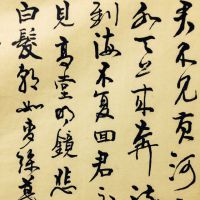 君不見黃河
水天上来奔流
到海不复回君
見高堂明鏡悲
白髮朝如青絲暮